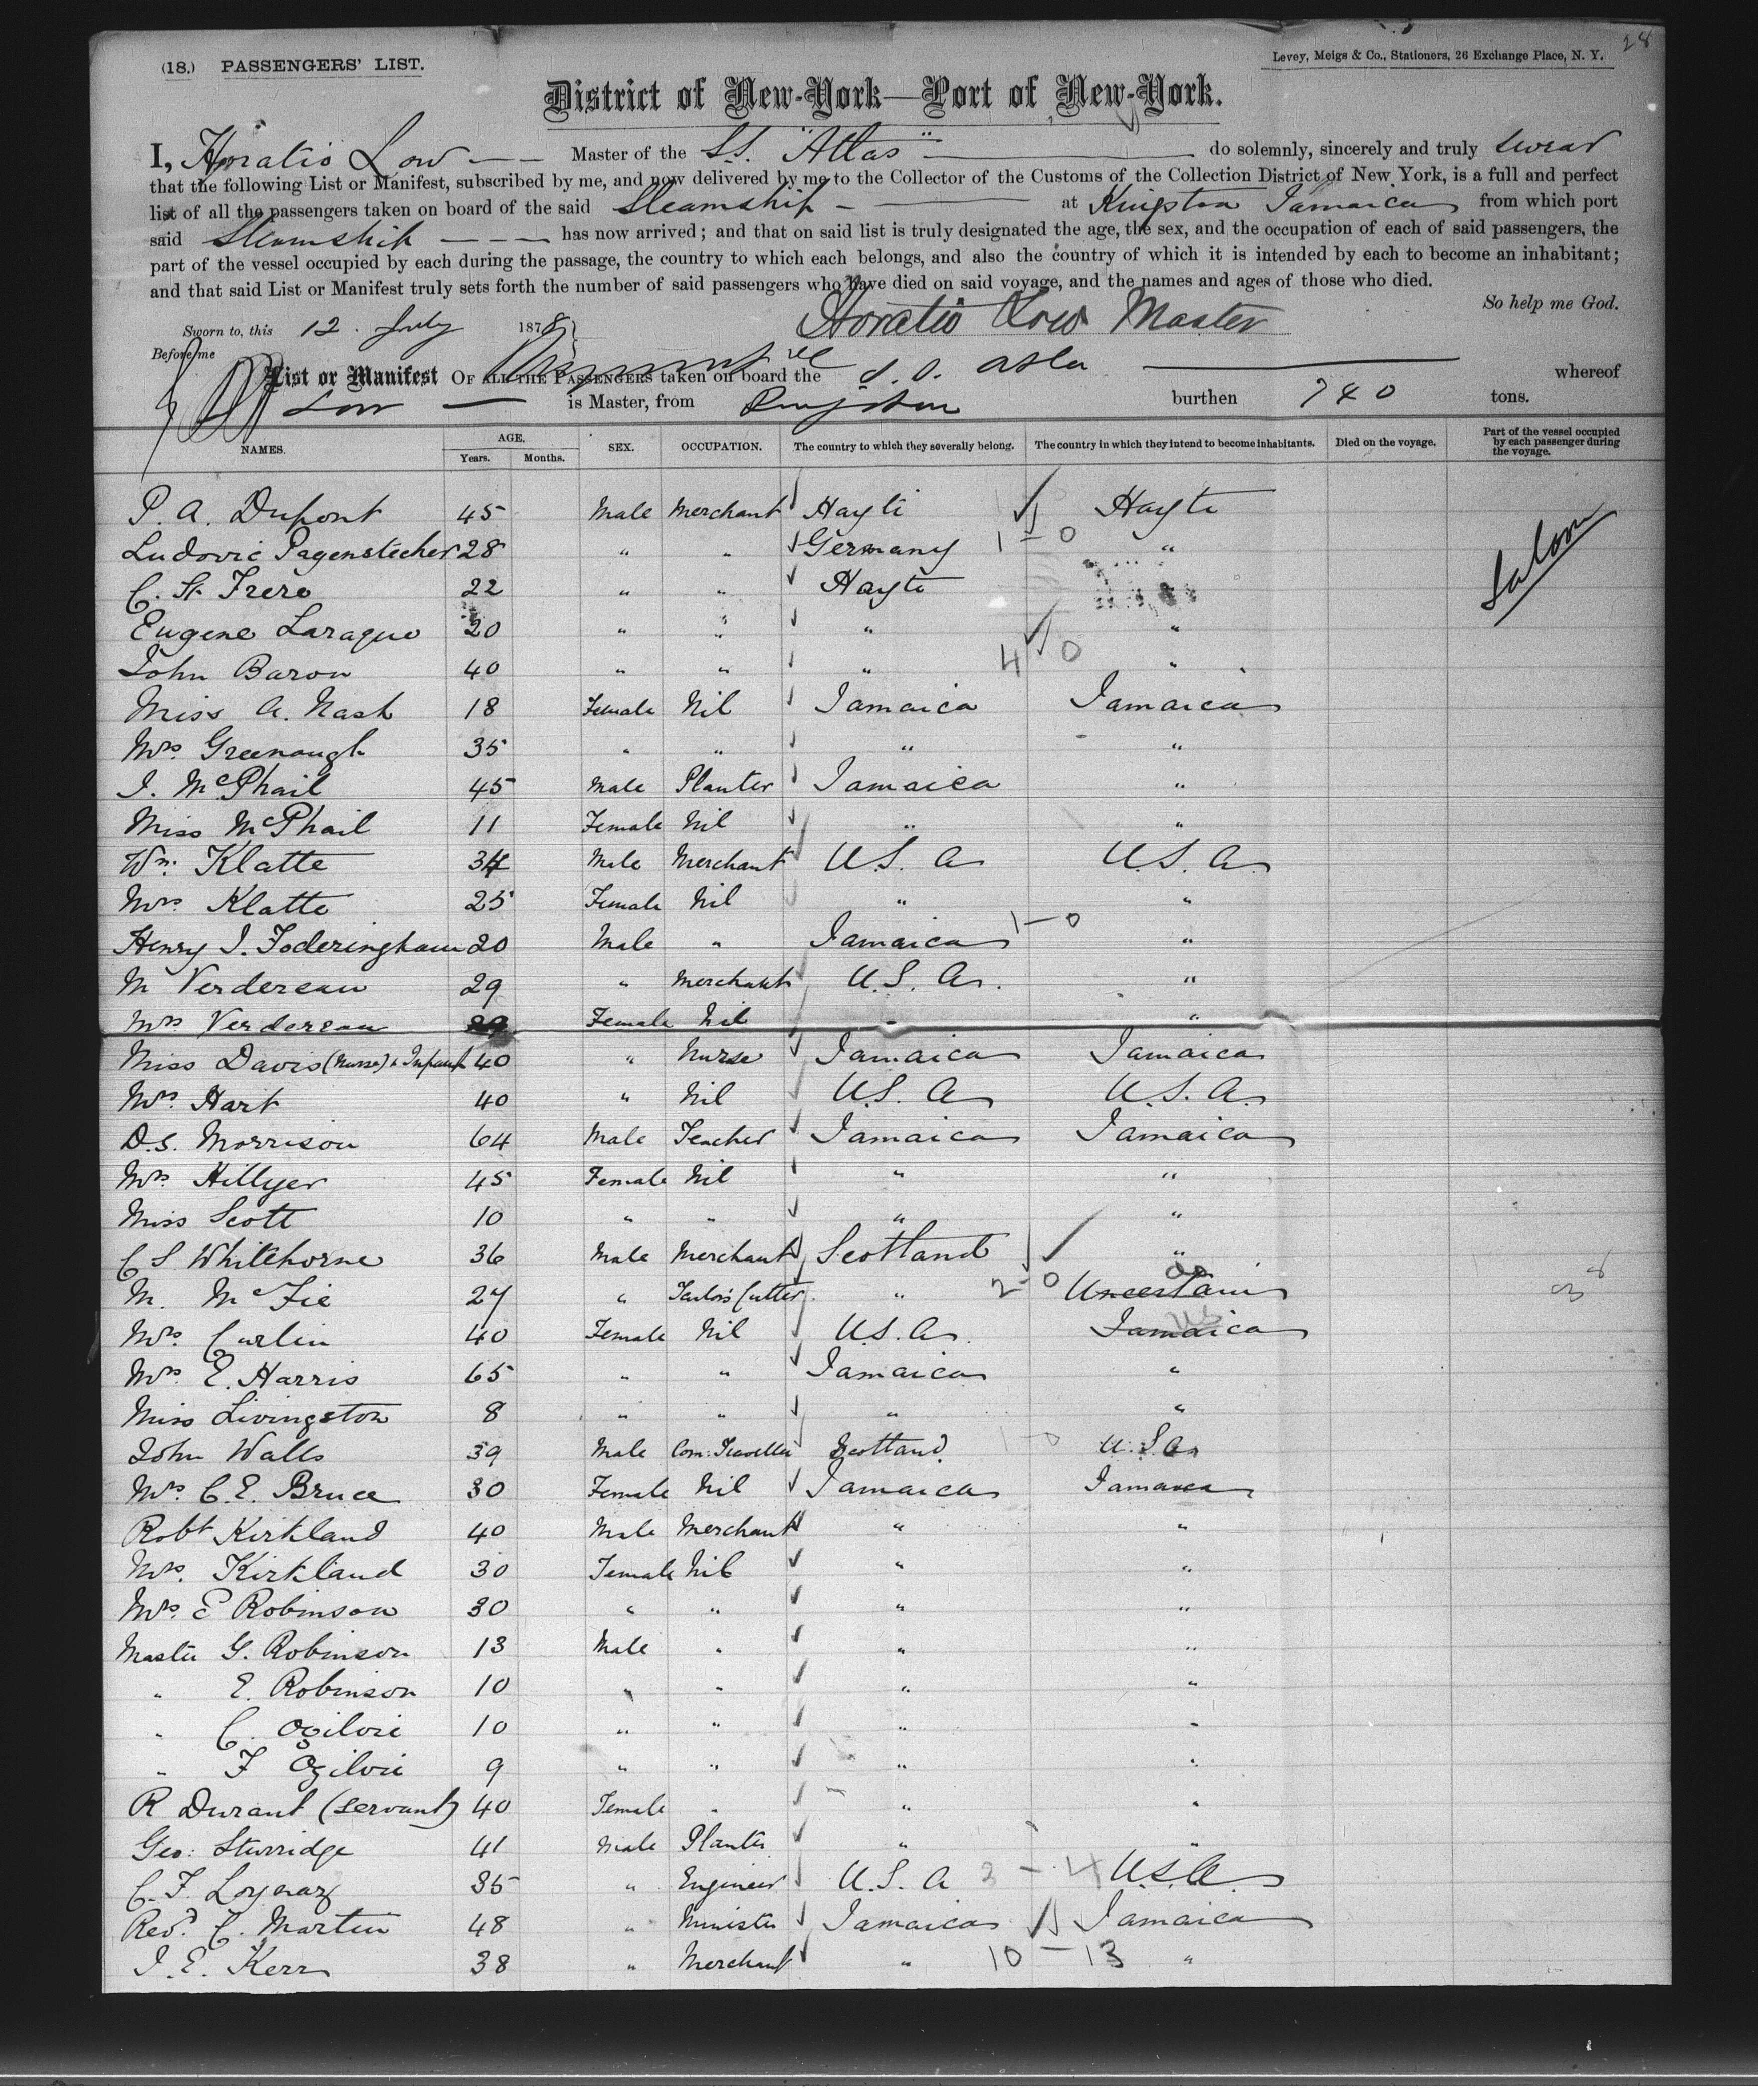 28
(18.) PASSENGERS' LIST.
Levey, Meigs & Co., Stationers, 26 Exchange Place, N. Y.
District of New-York—Port of New-York.
I, Horatio Low Master of the S.S. "Atlas" do solemnly, sincerely and truly swear
that the following List or Manifest, subscribed by me, and now delivered by me to the Collector of the Customs of the Collection District of New York, is a full and perfect
list of all the passengers taken on board of the said Steamship at Kingston Jamaica from which port
said Steamship has now arrived; and that on said list is truly designated the age, the sex, and the occupation of each of said passengers, the
part of the vessel occupied by each during the passage, the country to which each belongs, and also the country of which it is intended by each to become an inhabitant;
and that said List or Manifest truly sets forth the number of said passengers who have died on said voyage, and the names and ages of those who died.
So help me God.
Sworn to, this 12 July 1878 Horatio Low Master
Before me
List or Manifest OF ALL THE PASSENGERS taken on board the S. S. Atlas whereof
Low is Master, from Kingston burthen 740 tons.
NAMES. AGE. Years. Months. SEX. OCCUPATION. The country to which they severally belong. The country in which they intend to become inhabitants. Died on the voyage. Part of the vessel occupied by each passenger during the voyage.
P. A. Dupont 45 Male Merchant Hayti Hayti Saloon
Ludovic Pagenstecher 28 " " Germany 1-0 "
C. St. Frere 22 " " Hayti
Eugene Laraque 20 " " " "
John Baron 40 " " " 4 0 "
Miss A. Nash 18 Female Nil Jamaica Jamaica
Mrs. Greenough 35 " " " "
J. McPhail 45 Male Planter Jamaica "
Miss McPhail 11 Female Nil " "
Wm. Klatte 34 Male Merchant U.S. A U.S. A.
Mrs. Klatte 25 Female Nil " "
Henry J. Foderingham 20 Male " Jamaica 1-0 "
M Verdereau 29 " Merchant U.S. A. "
Mrs Verdereau Female Nil " "
Miss Davis (Nurse) & Infant 40 " Nurse Jamaica Jamaica
Mrs. Hart 40 " Nil U.S. A U.S. A.
D.S. Morrison 64 Male Teacher Jamaica Jamaica
Mrs. Hillyer 45 Female Nil " "
Miss Scott 10 " " " "
C S Whitehorne 36 Male Merchant Scotland "
M. McFie 27 " Tailors Cutter " 2-0 Uncertain
Mrs. Curlin 40 Female Nil U.S. A. Jamaica US
Mrs. E. Harris 65 " " Jamaica "
Miss Livingston 8 " " " "
John Walls 39 Male Com: Traveller Scotland 1-0 U.S.A
Mrs. C. E. Bruce 30 Female Nil Jamaica Jamaica
Robt Kirkland 40 Male Merchant " "
Mrs. Kirkland 30 Female Nil " "
Mrs. E Robinson 30 " " " "
Master G. Robinson 13 Male " " "
" E. Robinson 10 " " " "
" C. Ogilvie 10 " " " "
" F Ogilvie 9 " " " "
R Durant (Servant) 40 Female " " "
Geo: Sturridge 41 Male Planter " "
C. F. 35 " Engineer U. S. A 3-4 U.S.A.
Revd. C. Martin 48 " Minister Jamaica Jamaica
J. E. Kerr 38 " Merchant " 10-13 "